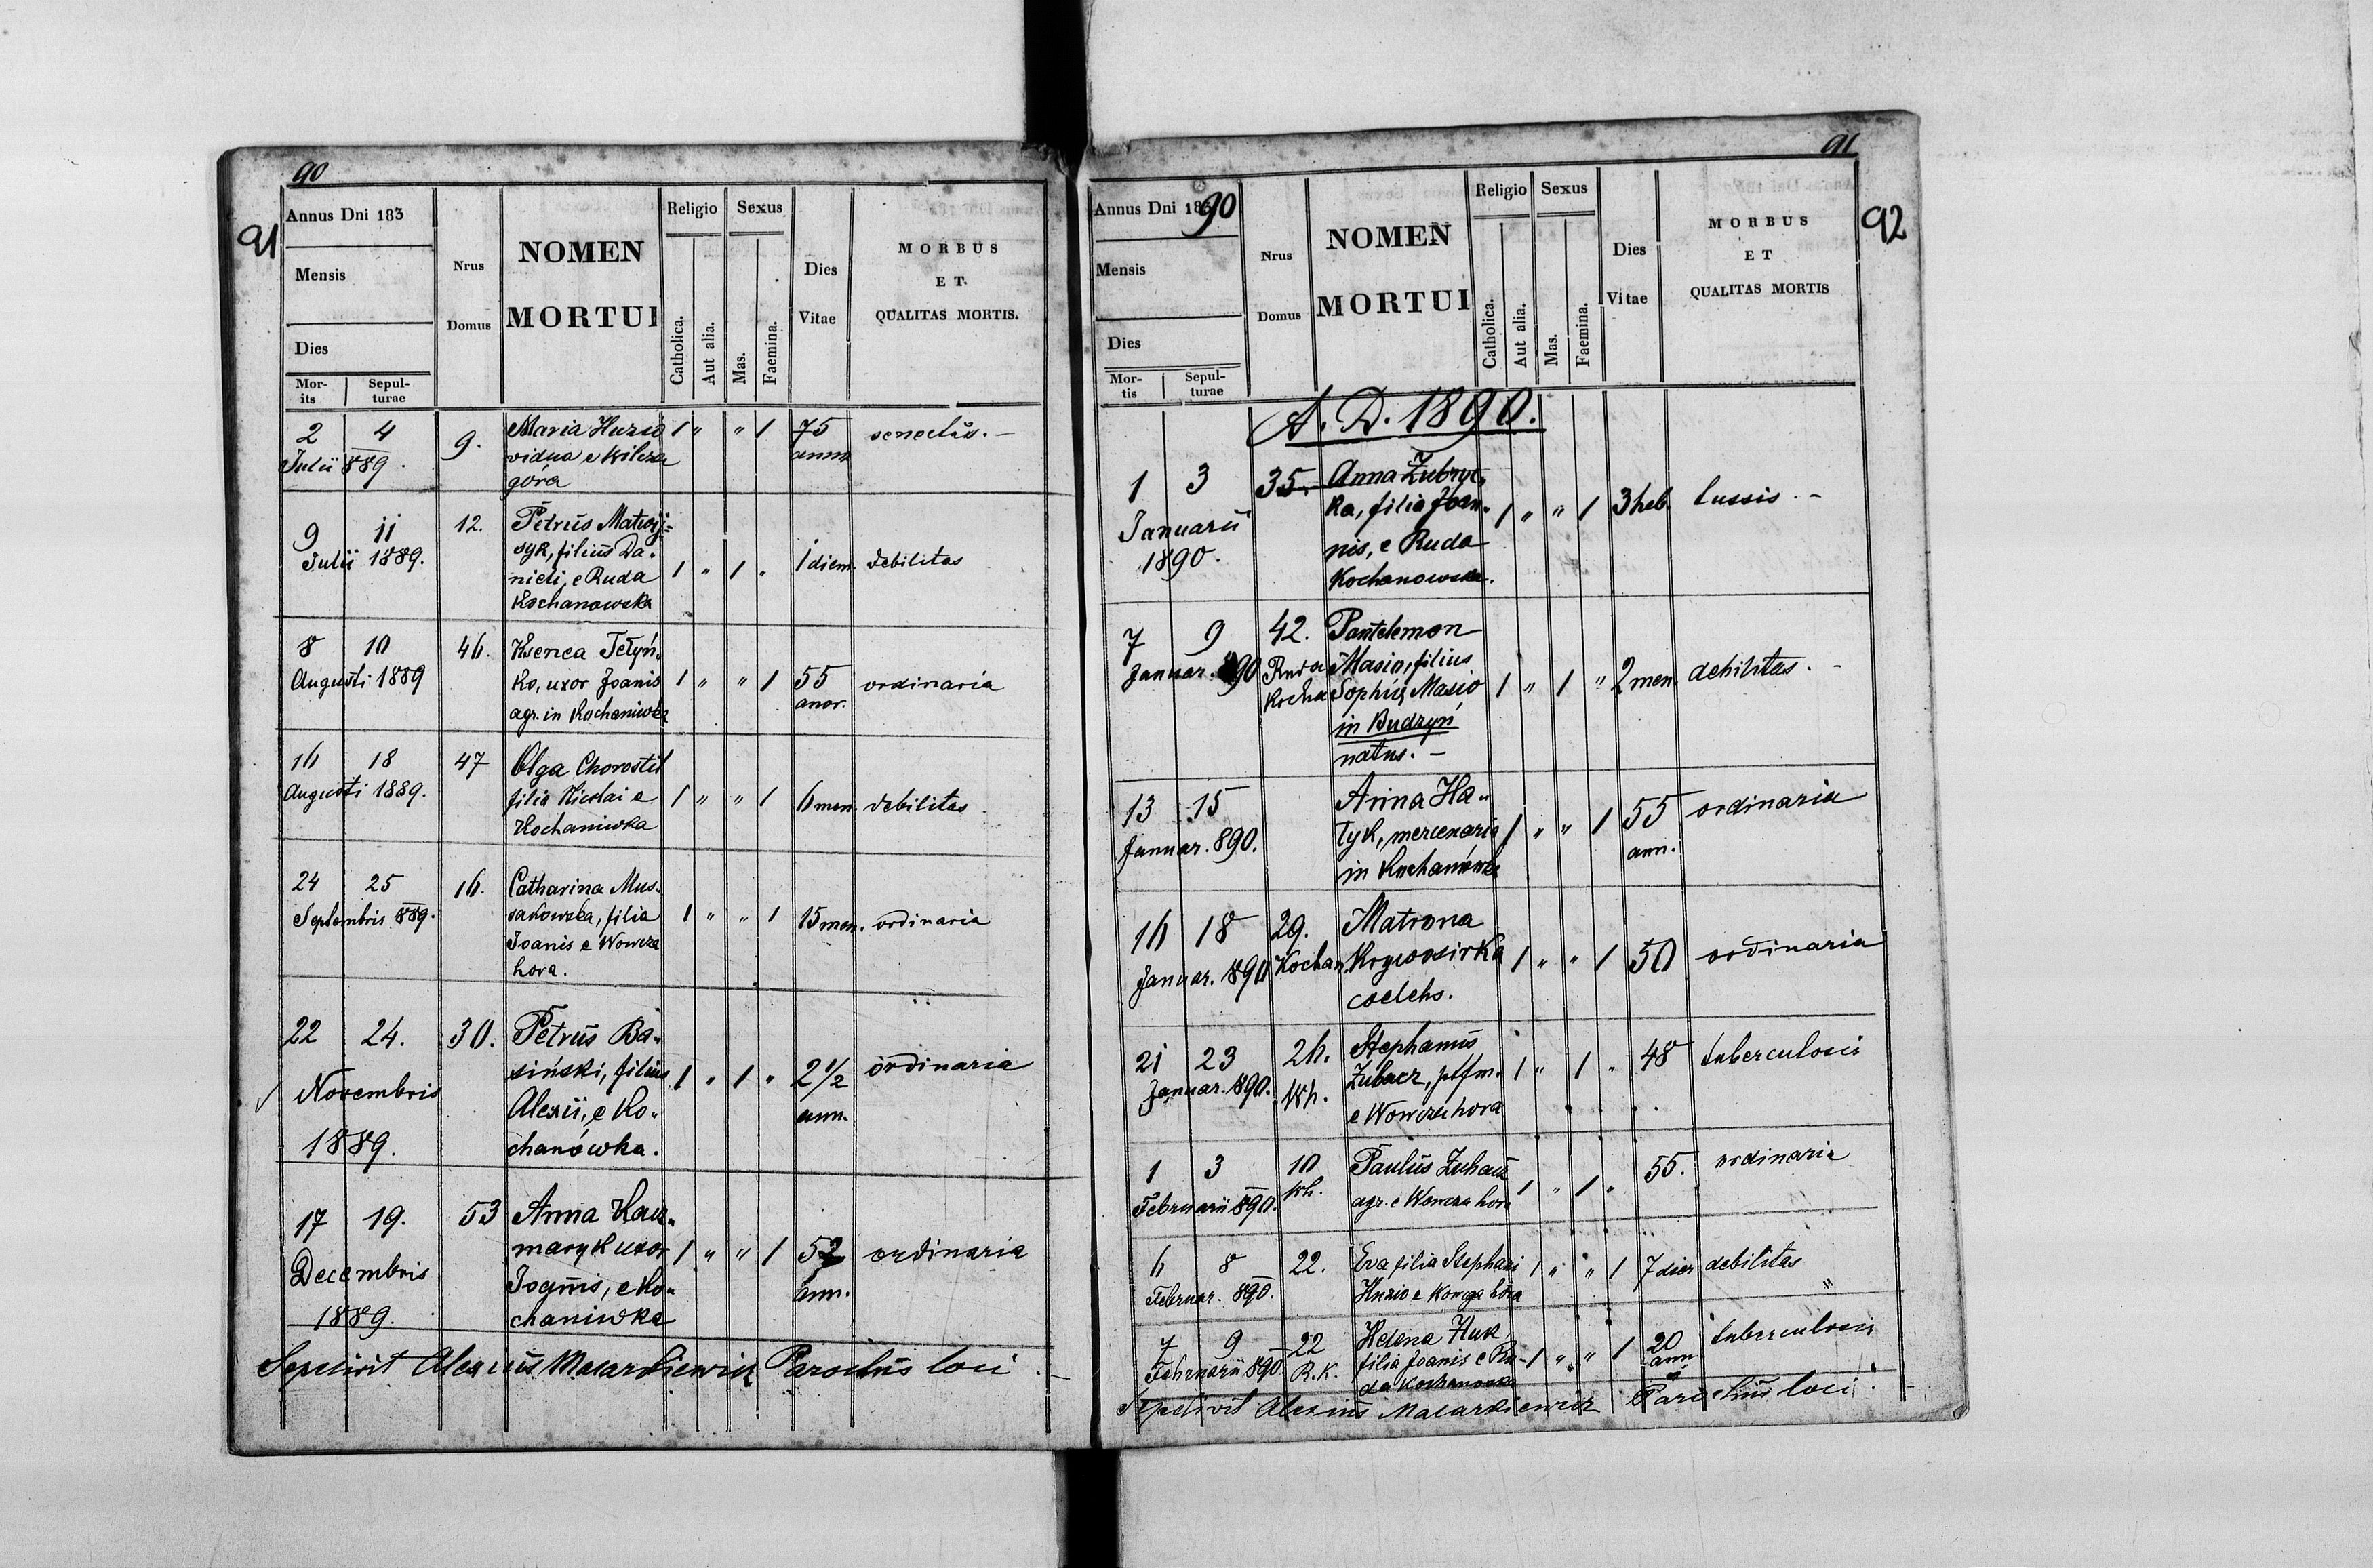 90
91
Annus Dni 183
Mensis
Dies
Mor-
tis
Sepul-
turae
Nrus
Domus
NOMEN
MORTUI
Religio
Catholica.
Aut alia.
Sexus
Mas.
Faemina.
Dies
Vitae
MORBUS
ET
QUALITAS MORTIS.
2 4 9. Maria Huzio 1 " " 1 75 senectus. –
Julii 889. vidua e Wilcza
góra
9 11 12. Petrus Matwij=
Julii 1889. syk, filius Da-
nieli, e Ruda 1 " 1 " 1 diem. debilitas
Kochanowska
8 10 46. Ksenea Tetyń-
Augusti 1889 ko, uxor Joanis 1 " " 1 55 ordinaria
agr. in Kochaniwka anor.
16 18 47 Olga Chorostil
Augusti 1889. filia Nicolai e 1 " " 1 6 men. debilitas
Kochaniwka
24 25 16. Catharina Mus-
Septembris 889. sakowska, filia 1 " " 1 15 men. ordinaria
Joanis e Wowcza
hora.
22 24. 30. Petrus Ba-
Novembris siński, filius 1 " 1 " 2 1/2 ordinaria
Alexii, e Ko- ann.
1889. chanówka.
17 19. 53 Anna
uxor 1 " " 1 52 ordinaria
Decembris Joannis, e Ko- ann.
1889. chaniwka
Sepelivit Alexius Macarkiewicz Parochus loci. –
91
92
Annus Dni 18 90
Mensis
Dies
Mor-
tis
Sepul-
turae
Nrus
Domus
NOMEN
MORTUI
Religio
Catholica.
Aut alia.
Sexus
Mas.
Faemina.
Dies
Vitae
MORBUS
ET
QUALITAS MORTIS
A. D. 1890.
1 3 35. Anna Zubryc-
Januarii ka, filia Joan- 1 " " 1 3 heb. tussis. –
1890. nis, e Ruda
Kochanowska.
7 9 42. Pantelemon
Januar. 890 Ruda Masio, filius
Kocha Sophię Masio 1 " 1 " 2 men. debilitas. –
in Budzyń
natus. –
13 15 Anna Ha-
Januar. 890. tyk, mercenaria 1 " " 1 55 ordinaria
in Kochanówka ann.
16 18 29. Matrona
Januar. 890 Kochan. Krywosirka 1 " " 1 50 ordinaria
coelebs.
21 23 26. Stephanus
Januar. 890. Wh. Zubacz, 1 " 1 " 48 tuberculosis
e Wowcza hora
1 3 10 Paulus
Februarii 890. Wh. agr. e Wowcza hora 1 " 1 " 55. ordinaria
6 8 22. Eva filia Stephani 1 " " 1 7 dier debilitas
Februar. 890. Huzio e hora "
7 9 22 Helena Huk,
Februarii 890 R. K. filia Joanis e Ru- 1 " " 1 20 tuberculosis
da Kochanowska ann
Sepelivit Alexius Macarkiewicz Parochus loci. –